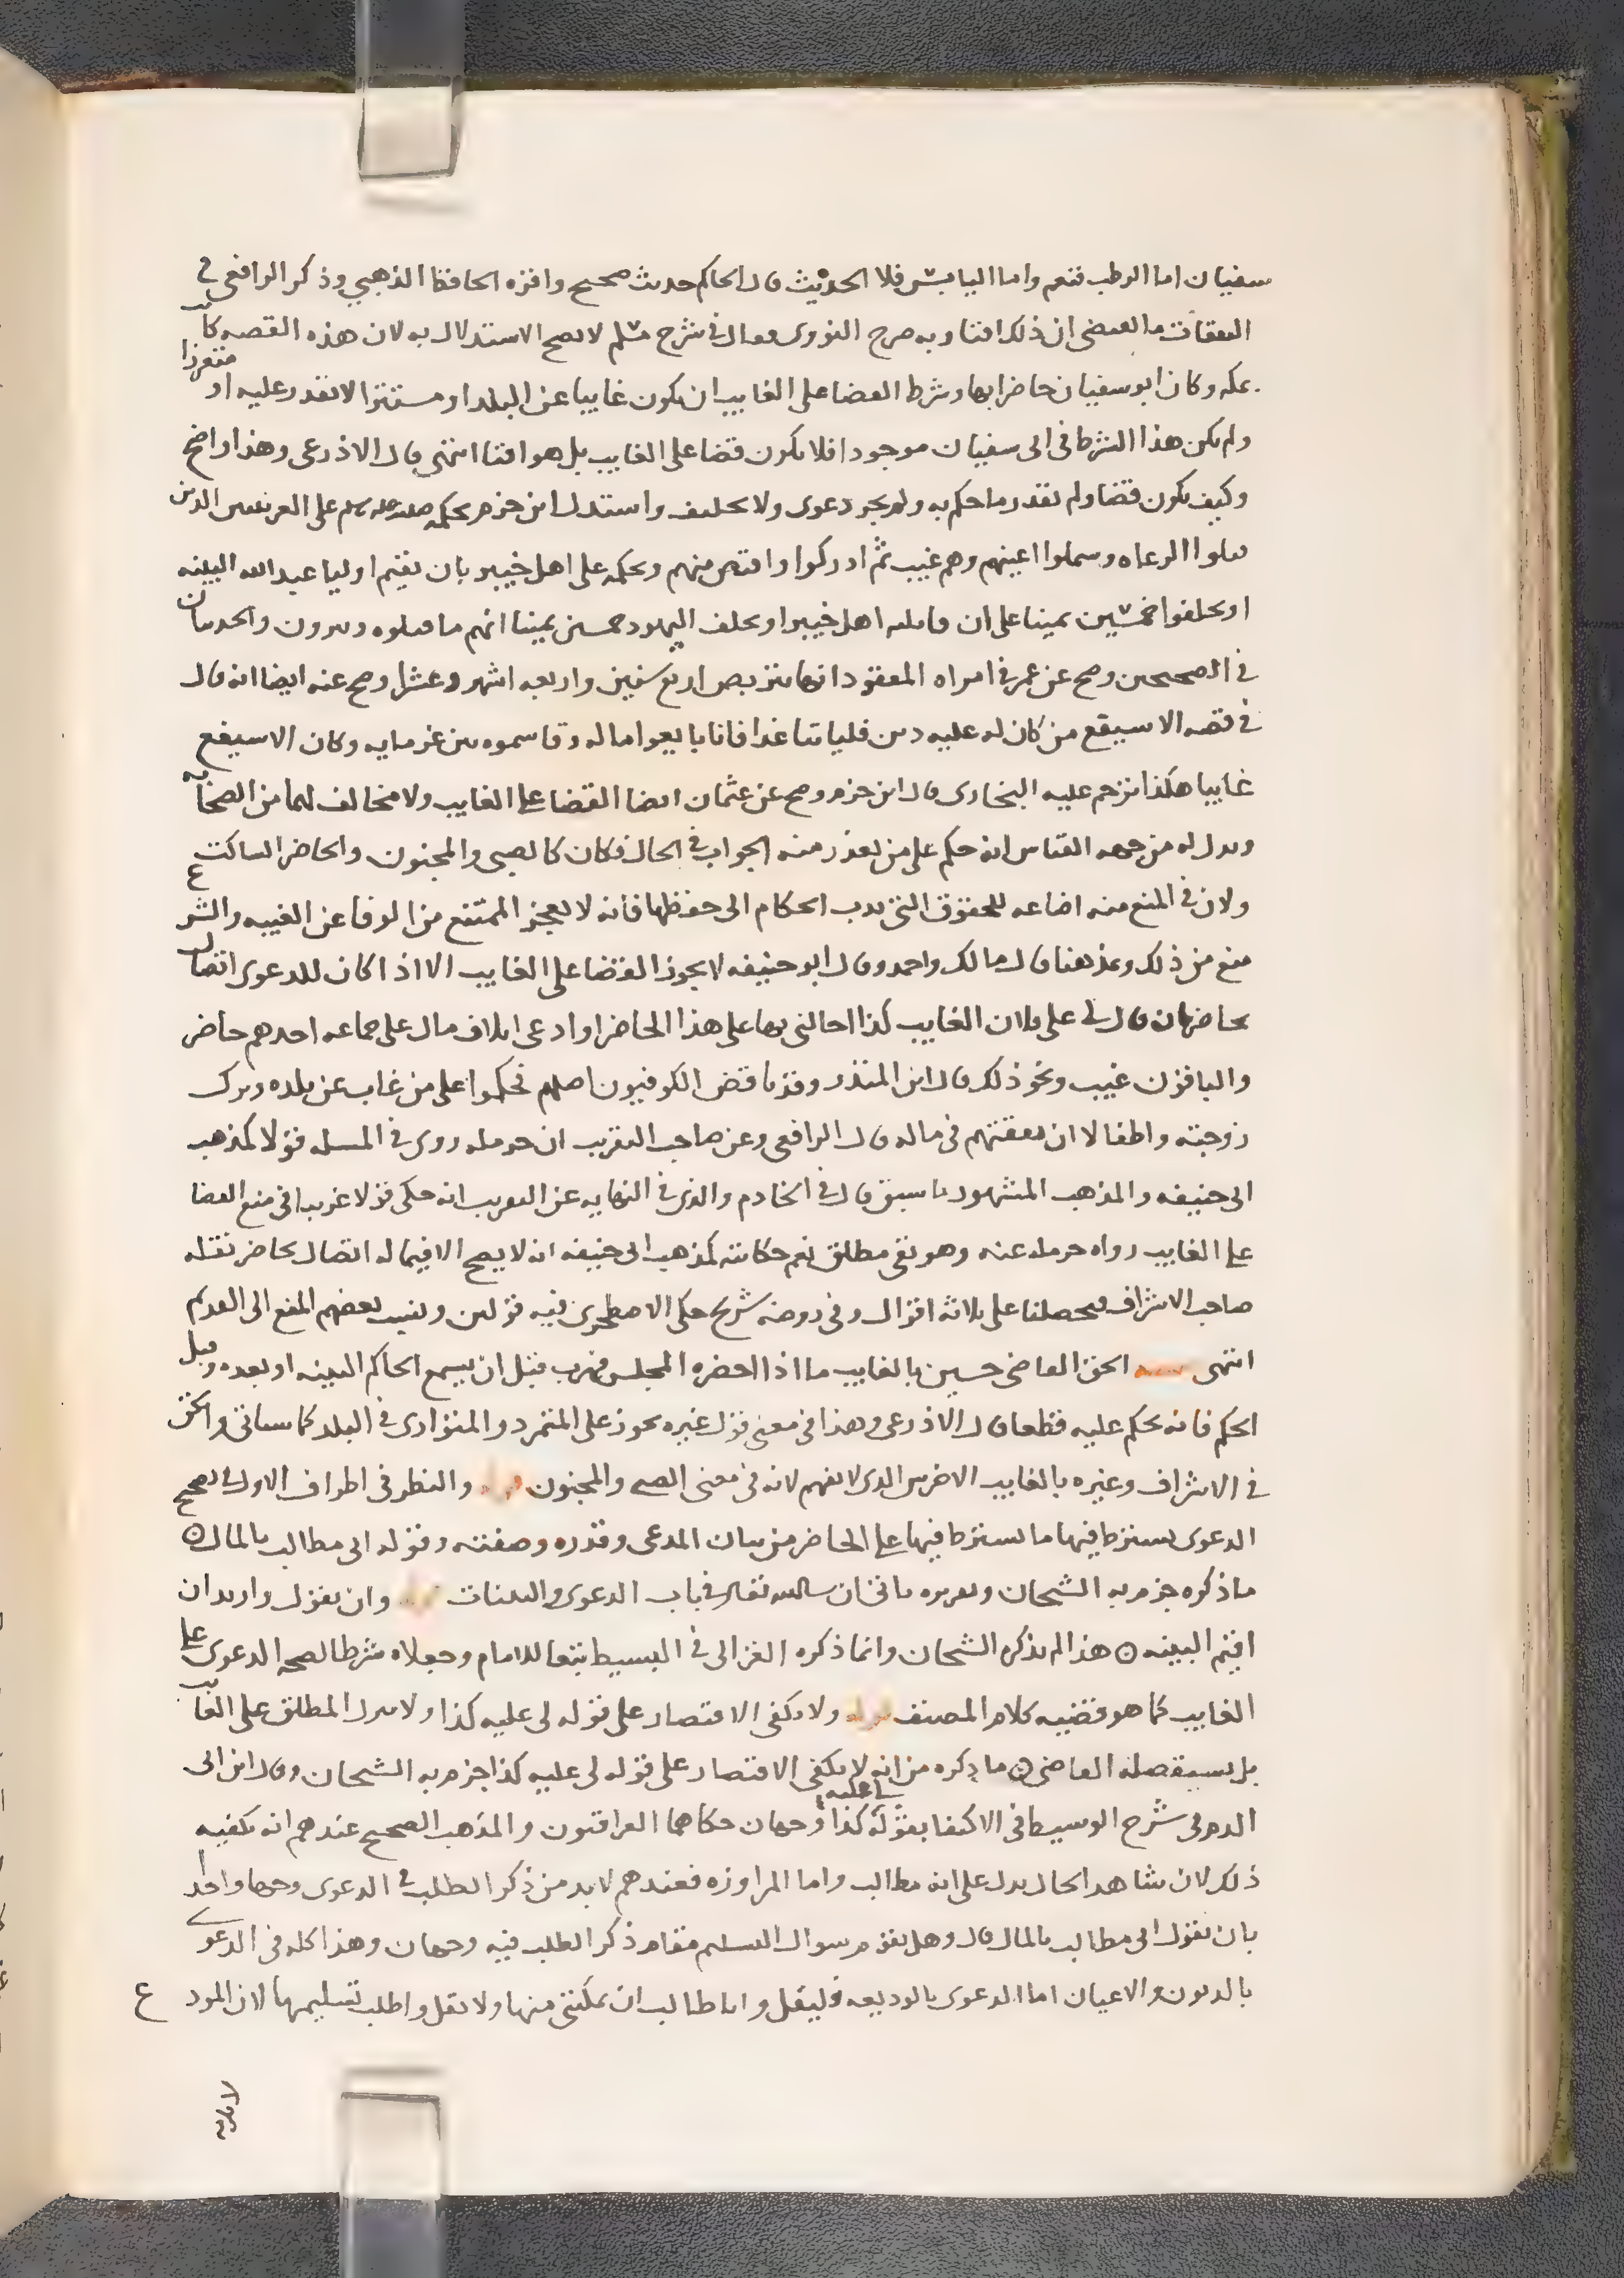 سفيان اما الرطب فنعم واما اليابس فلا الحديث قال الحاكم حديث صحيح واقره الحافظ الذهبي وذكر الرافعي في
النفقات ما يقتضي ان ذلك افتا وبه صرح النووي وقال في شرح مسلم لا يصح الاستدلال به لان هذه القصه كانت
بمكه وكان ابو سفيان حاضرا بها وشرط القضا على الغايب ان يكون غايبا عن البلد او مستترا لا يقدر عليه او متعززا
ولم يكن هذا الشرط في ابي سفيان موجودا فلا يكون قضا على الغايب بل هو افتا انتهى قال الاذرعي وهذا واضح
وكيف يكون قضا ولم يقدر ما حكم به ولم يجر دعوى ولا تحليف واستدل ابن حزم بحكمه صلى الله عليه وسلم على العرنيين الذين
قتلوا الرعاه وسملوا اعينهم وهم غيب ثم ادركوا واقتص منهم وبحكمه على اهل خيبر بان يقيم اوليا عبد الله البينه
او يحلفوا خمسين يمينا على ان قاتله اهل خيبر او يحلف اليهود خمسين يمينا انهم ما قتلوه ويبرون والحديثان
في الصحيحين وصح عن عمر في امراه المفقود انها تتربص اربع سنين واربعه اشهر وعشرا وصح عنه ايضا انه قال
في قصه الاسيفع من كان له عليه دين فلياتنا غدا فانا بايعوا ماله وقاسموه بين غرمايه وكان الاسيفع
غايبا هكذا ترجم عليه البخاري قال ابن حزم وصح عن عثمان ايضا القضا على الغايب ولا مخالف لهما من الصحابه
ويدل له من جهه القياس انه حكم على من تعذر منه الجواب في الحال فكان كالصبي والمجنون والحاضر الساكت
ولان في المنع منه اضاعه للحقوق التي ندب الحكام الى حفظها فانه لا يعجز الممتنع من الوفا عن الغيبه والشرع
منع من ذلك وبمذهبنا قال مالك واحمد وقال ابو حنيفه لا يجوز القضا على الغايب الا اذا كان للدعوى اتصال
بحاضر بان قال لي على فلان الغايب كذا احالني بها على هذا الحاضر او ادعى اتلاف مال على جماعه احدهم حاضر
والباقون غيب ونحو ذلك قال ابن المنذر وقد ناقض الكوفيون اصلهم فحكموا على من غاب عن بلده وترك
زوجته واطفالا ان نفقتهم في ماله قال الرافعي وعن صاحب التقريب ان حرمله روى في المسله قولا كمذهب
ابي حنيفه والمذهب المشهور ما سبق قال في الخادم والذي في النهايه عن التقريب انه حكى قولا غريبا في منع القضا
على الغايب رواه حرمله عنه وهو نفي مطلق نعم حكايته كمذهب ابي حنيفه انه لا يصح الا فيما له اتصال بحاضر نقله
صاحب الاشراف فيحصلنا على ثلاثه اقوال وفي روضه شريح حكى الاصطخري فيه قولين ونسب بعضهم المنع الى القديم
انتهى الحق القاضي حسين بالغايب ما اذا احضره المجلس فهرب قبل ان يسمع الحاكم البينه او بعده وقبل
الحكم فانه يحكم عليه قطعا قال الاذرعي وهذا في معنى قول غيره يجوز على المتمرد والمتواري في البلد كما سياتي والحق
في الاشراف وغيره بالغايب الاخرس الذي لا يفهم لانه في معنى الصبي والمجنون والنظر في اطراف الاول في تصحيح
الدعوى يشترط فيها ما يشترط فيها على الحاضر من بيان المدعى وقدره وصفته وقوله اني مطالب بالمال
ما ذكره جزم به الشيخان وتقريره ياتي ان شا الله تعالى في باب الدعوى والبينات وان يقول واريد ان
اقيم البينه هذا لم يذكره الشيخان وانما ذكره الغزالي في البسيط تبعا للامام وجعلاه شرطا لصحه الدعوى على
الغايب كما هو قضيه كلام المصنف ولا يكفي الاقتصار على قوله لي عليه كذا ولا ينزل المطلق على الغايب
بل يستفصله القاضي ما ذكره من انه لا يكفي الاقتصار على قوله لي عليه كذا جزم به الشيخان وقال ابن ابي
الدم في شرح الوسيط في الاكتفا بقوله لي عليه كذا وجهان حكاهما العراقيون والمذهب الصحيح عندهم انه يكفيه
ذلك لان شاهد الحال يدل على انه مطالب واما المراوزه فعندهم لا بد من ذكر الطلب في الدعوى وجها واحدا
بان يقول اني مطالب بالمال قال وهل يقوم سوال التسليم مقام ذكر الطلب فيه وجهان وهذا كله في الدعوى
بالديون والاعيان اما الدعوى بالوديعه فليقل وانا طالب ان يمكنني منها ولا يقل واطلب تسليمها لان المودع
لا يلزمه